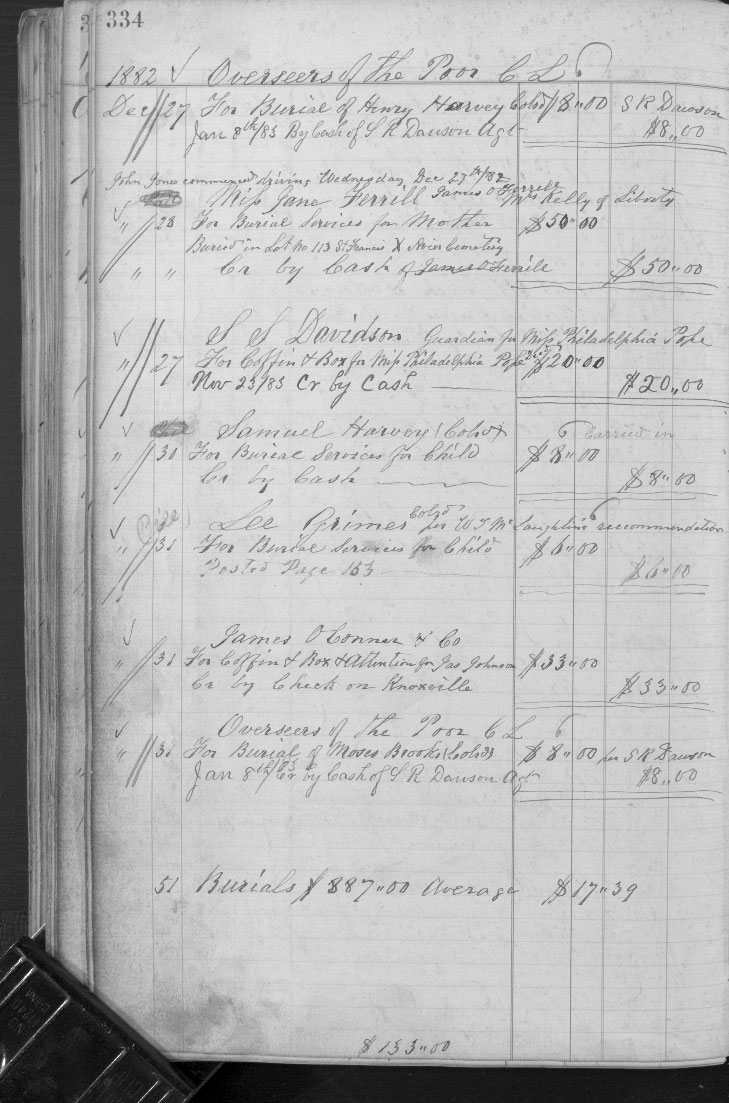 334
1882 ✓ Overseers of the Poor C L
Dec 27 For Burial of Henry Harvey Cold $8"00 S R Dawson
Jan 8th/83 By Cash of S R Dawson Agt $8,,00
John Jones commenced driving Wednesday Dec 27th/82
Miss Jane Ferrill James O Ferrell Mrs Kelly of Liberty
" 28 For Burial Services for Mother $50"00
Buried in Lot No 113 St Francis X Avier Cemetery
" " Cr by Cash of James O Ferrile $50"00
S S Davidson Guardian for Miss Philadelphia Pope
" 27 For Coffin & Box for Miss Philadelphia Pope $20"00
Nov 23/83 Cr by Cash $20,,00
Samuel Harvey (Cold) Carried in
" 30 For Burial Services for Child $8"00
Cr by Cash $8"00
Lee Grimer Cold for W T McLaughlins reccommendation
" 31 For Burial Services for Child $6"00
Posted Page 153 $6"00
James O Conner & Co
" 31 For Coffin & Box & attention for Jas Johnson $33"00
Cr by Check on Knoxville $33"00
Overseers of the Poor C L
" 31 For Burial of Moses Brooks (Cold) $8"00 per S R Dawson
Jan 8th/83 Cr by Cash of S R Dawson Agt $8,,00
51 Burials $887"00 Average $17"39
$133"00